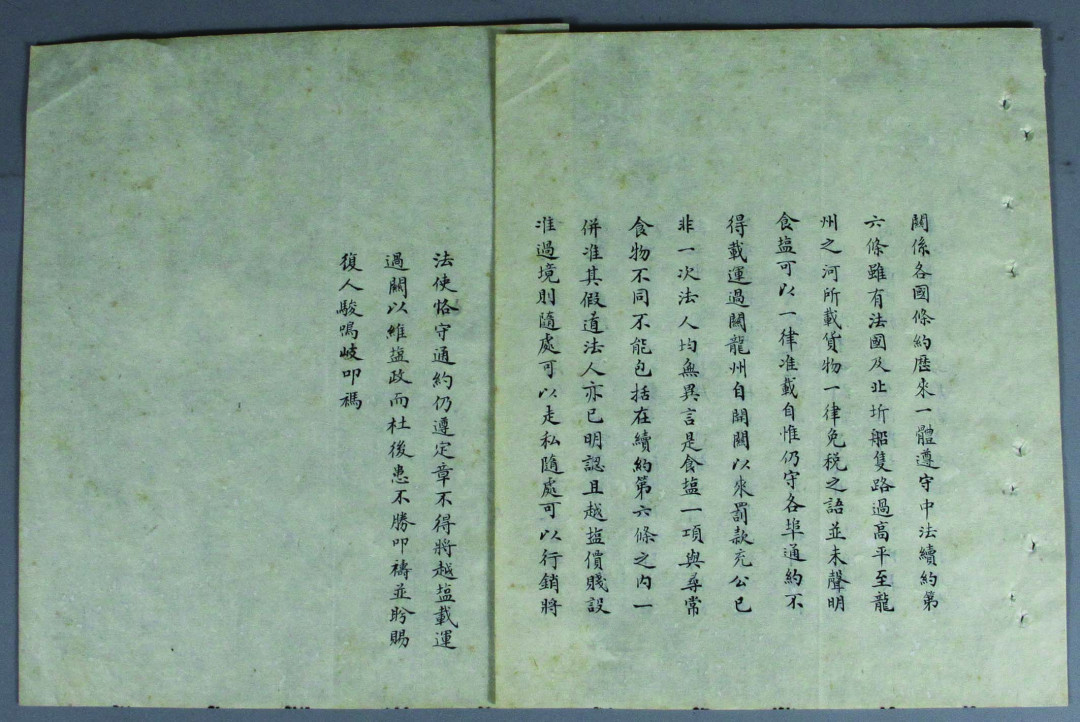 關係各國條約歷來一體遵守中法續約第
六條雖有法國及北圻船隻路過高平至龍
州之河所載貨物一律免稅之語並未聲明
食塩可以一律准載自惟仍守各埠通約不
得載運過關龍州自開關以來罰款充公已
非一次法人均無異言是食塩一項與尋常
食物不同不能包括在續約第六條之內一
併准其假道法人亦已明認且越塩價賤設
准過境則隨處可以走私隨處可以行銷將
法使恪守通約仍遵定章不得將越塩載運
過關以維塩政而杜後患不勝叩禱並盼賜
復人駿鳴岐叩禡